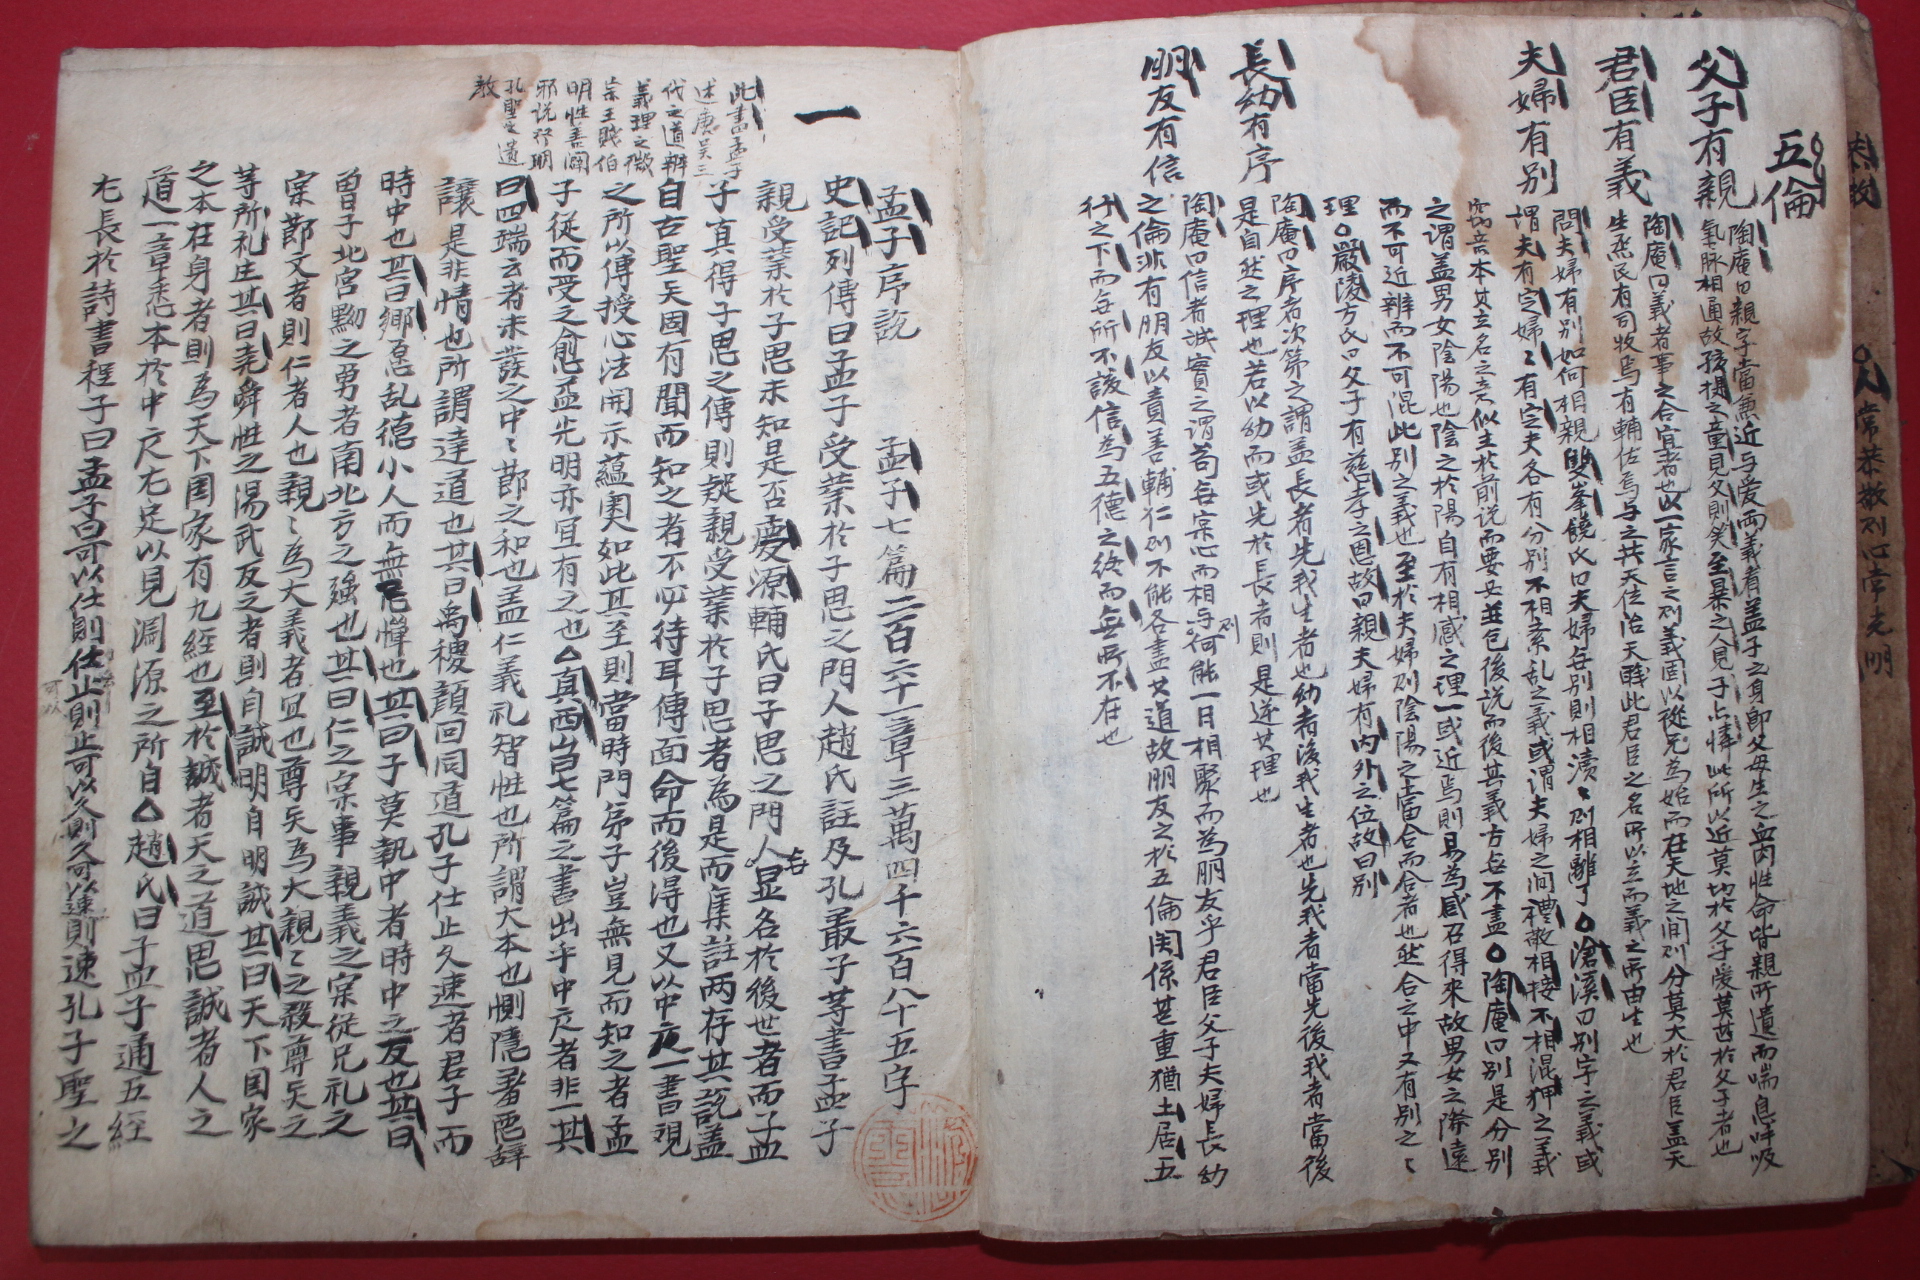 五倫
父子有親
陶庵曰親字當兼近与爱兩義看盖子之身卽父母生之血肉性命皆親所遺而喘息呼吸
氣脉相通故孩提之童見父則笑至暴之人見子心憐此所以近莫切於父子爱莫甚於父子者也
君臣有義
陶庵曰義者事之合宜者也以一家言之則義固以從兄為始而在天地之間則分莫大於君臣盖天
生烝民有司牧焉有輔佐焉与之共天位治天職此君臣之名所以立而義之所由生也
夫婦有別
問夫婦有別如何相親雙峯饒氏曰夫婦每別則相瀆瀆則相離了滄溪曰別字之義或
謂夫有定婦婦有定夫各有分別不相紊乱之義或謂夫婦之间禮敬相接不相混狎之義
本其立名之意似主於前説而要每並包後説而後其義方每不盡陶庵曰別是分別
之謂盖男女陰陽也陰之於陽自有相感之理一或近焉則易為感召得來故男女之際遠
而不可近辨而不可混此別之義也至於夫婦則陰陽之當合而合者也然合之中又有別之之
理嚴陵方氏曰父子有慈孝之恩故曰親夫婦有內外之位故曰別
長幼有序
陶庵曰序者次第之謂盖長者先我生者也幼者後我生者也先我者當先後我者當後
是自然之理也若以幼而或先於長者則是逆其理也
朋友有信
陶庵曰信者誠實之謂苟每宲心而相与則何能一日相聚而為朋友乎君臣父子夫婦長幼
之倫非有朋友以責善輔仁則不能各盡其道故朋友之於五倫関係甚重猶土居五
行之下而每所不該信為五德之終而每所不在也
一
此書孟子
述唐吴三
代之道辨
義理之微
崇王賤伯
明性善闢
邪説以明
孔聖之遺
敎
孟子序説 孟子七篇二百六十一章三萬四千六百八十五字
史記列傳曰孟子受業於子思之門人趙氏註及孔叢子等書孟子
親受業於子思未知是否慶源輔氏曰子思之門人無顕名於後世者而子孟
子真得子思之傳則疑親受業於子思者為是而集註两存其説盖
自古聖矣固有聞而知之者不必待耳傳面命而後得也又以中庸一書覌
之所以傳授心法開示蘊奧如此其至則當時門弟子豈無見而知之者孟
子從而受之愈益光明亦宜有之也真西山曰七篇之書出乎中庸者非一其
曰四端云者未發之中中節之和也盖仁義礼智性也所謂大本也惻隱羞惡辞
讓是非情也所謂達道也其曰禹稷顔回同道孔子仕止久速者君子而
時中也其曰鄕愿乱德小人而無忌憚也其曰子莫執中者時中之反也其曰
曾子北宮黝之勇者南北方之强也其曰仁之宲事親義之宲從兄礼之
宲節文者則仁者人也親親為大義者宜也尊矣為大親親之殺尊矣之
等所礼生其曰堯舜性之湯武反之者則自誠明自明誠其曰天下国家
之本在身者則為天下国家有九經也至於誠者天之道思誠者人之
道一章悉本於中庸尤足以見淵源之所自趙氏曰子孟子通五經
尤長於詩書程子曰孟子曰可以仕則仕止則止可以久則久可以速則速孔子聖之